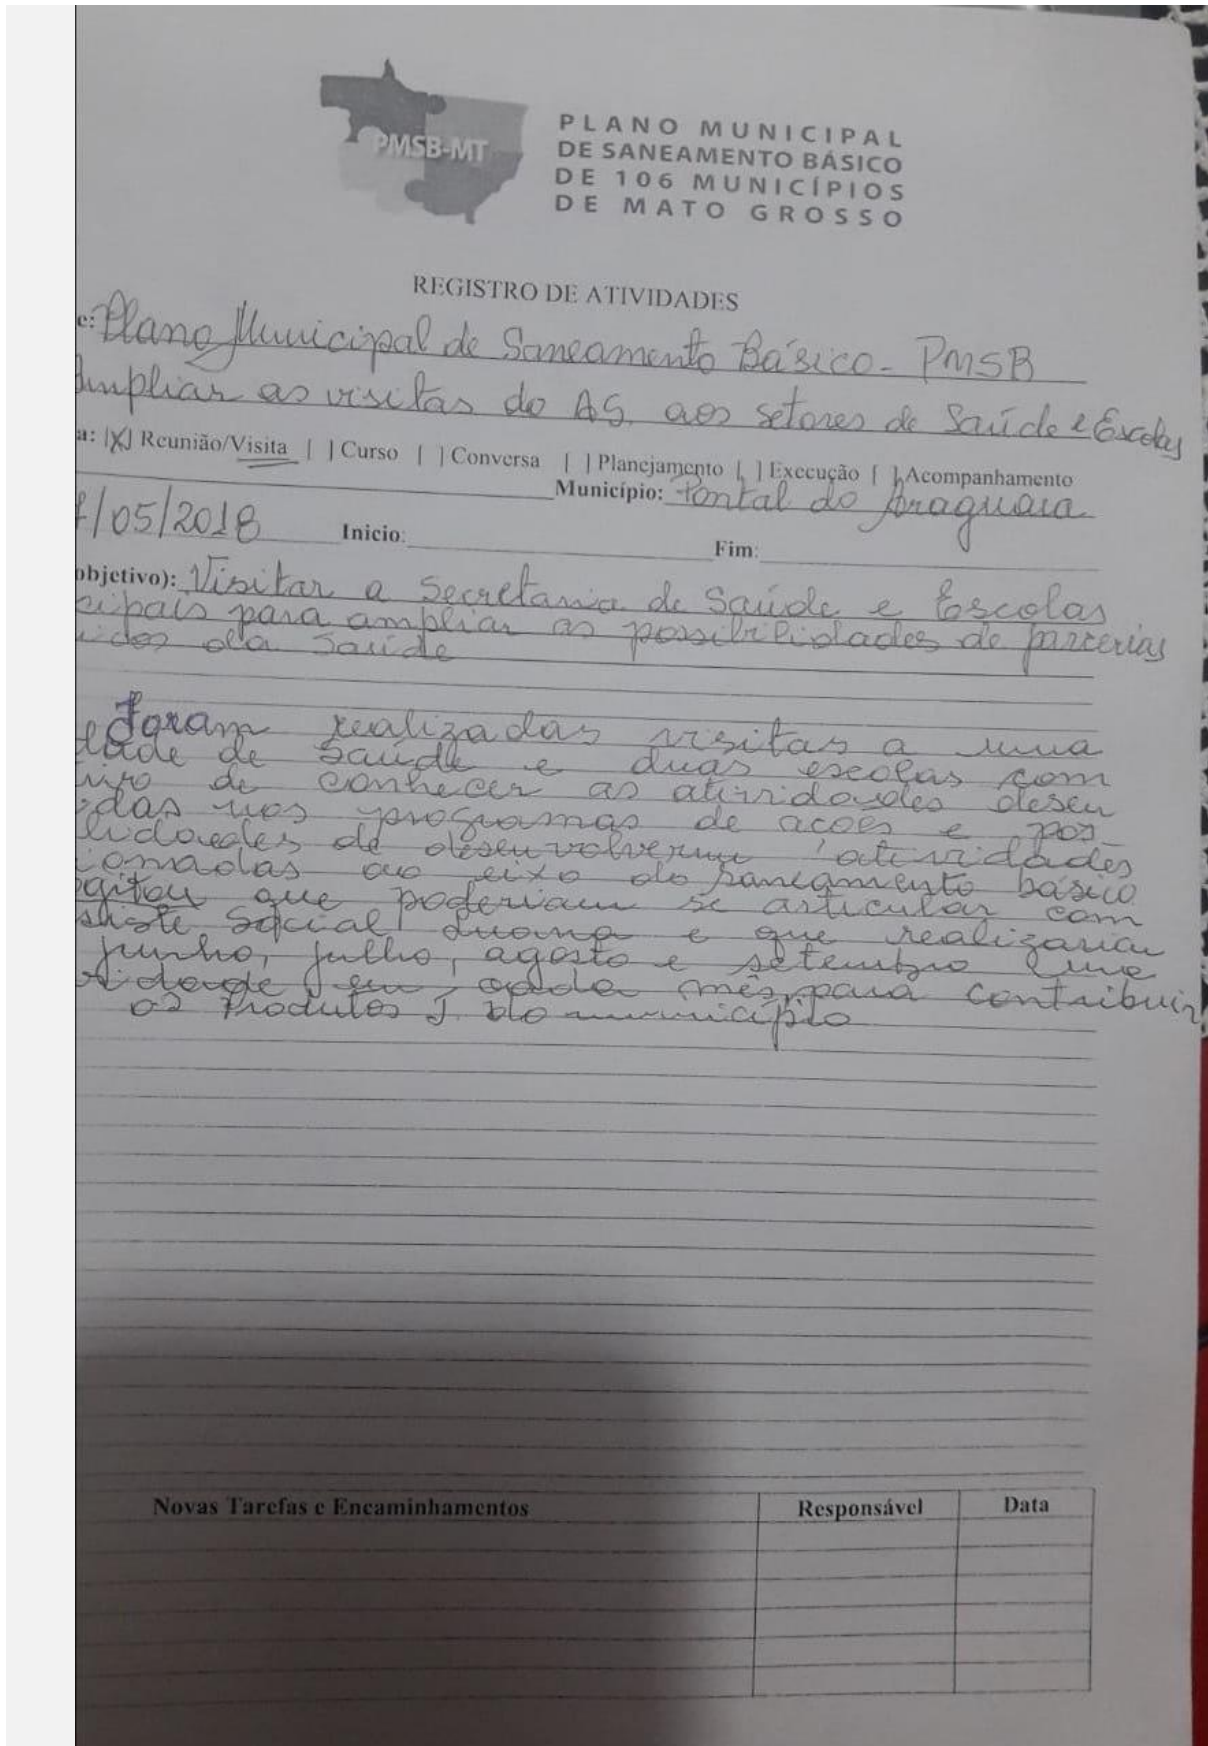 PMSB-MT
PLANO MUNICIPAL
DE SANEAMENTO BÁSICO
DE 106 MUNICÍPIOS
DE MATO GROSSO
REGISTRO DE ATIVIDADES
e: Plano Municipal de Saneamento Básico - PMSB
Ampliar as visitas do AS. aos setores de Saúde e Escolas
a: [X] Reunião/Visita [ ] Curso [ ] Conversa [ ] Planejamento [ ] Execução [ ] Acompanhamento
Município: Pontal do Araguaia
/05/2018 Inicio: Fim:
objetivo): Visitar a Secretaria de Saúde e Escolas
cipais para ampliar as possibilidades de parcerias
da Saúde
Foram realizadas visitas a uma
dade de Saúde e duas escolas com
de conhecer as atividades desen
idas nos programas de acoes e pos
lidades de desenvolverem atividades
ionadas ao eixo do saneamento básico
que poderiam se articular com
social e que realizaria
junho, julho, agosto e setembro uma
vidade em cada mês para contribuir
os Produtos J do município
Novas Tarefas e Encaminhamentos Responsável Data